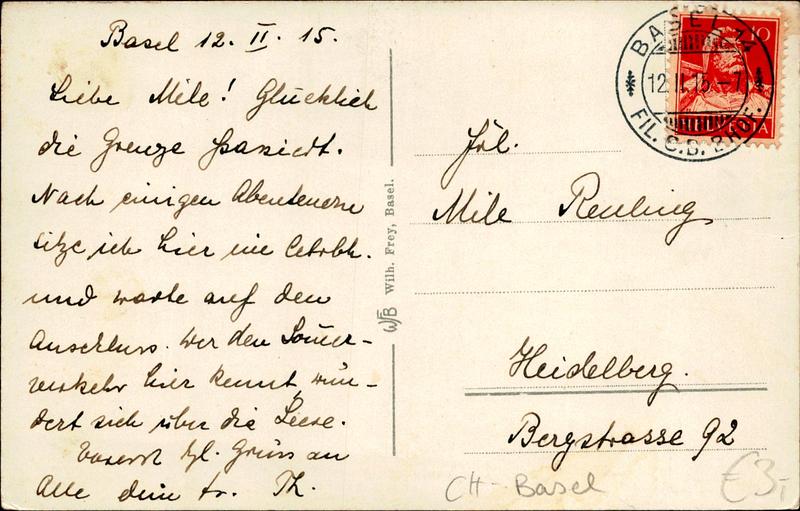 Basel 12. II. 15.
Liebe Mile! Glücklich
die Grenze passiert.
Nach einigen Abenteuern
sitze ich hier im
und warte auf den
Anschluss. Wer den Somer-
verkehr hier kennt, wun-
dert sich über die Leere.
hzl. Gruss an
Alle dein tr. Th.
Wilh. Frey, Basel.
WFB
BASEL 14
12.II.15.–7
FIL. S.B. BHOF.
10
HELVETIA
Frl.
Mile Reuling
Heidelberg.
Bergstrasse 92
CH - Basel
€3,-